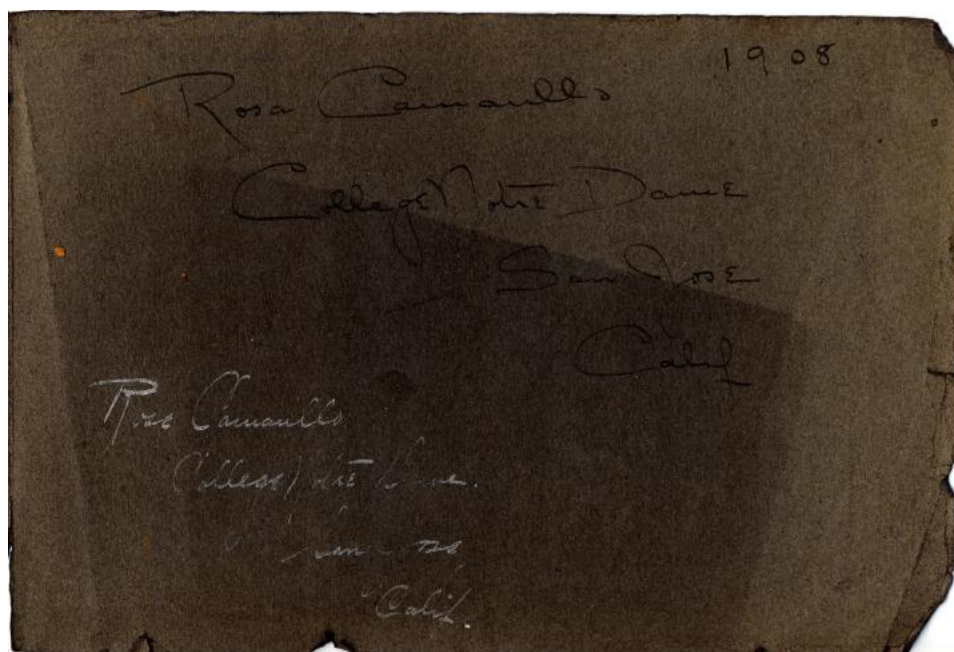 1908
Rosa Camarillo
College Notre Dame
San Jose
Calif
Rosa Camarillo
College Notre Dame.
San Jose,
Calif.